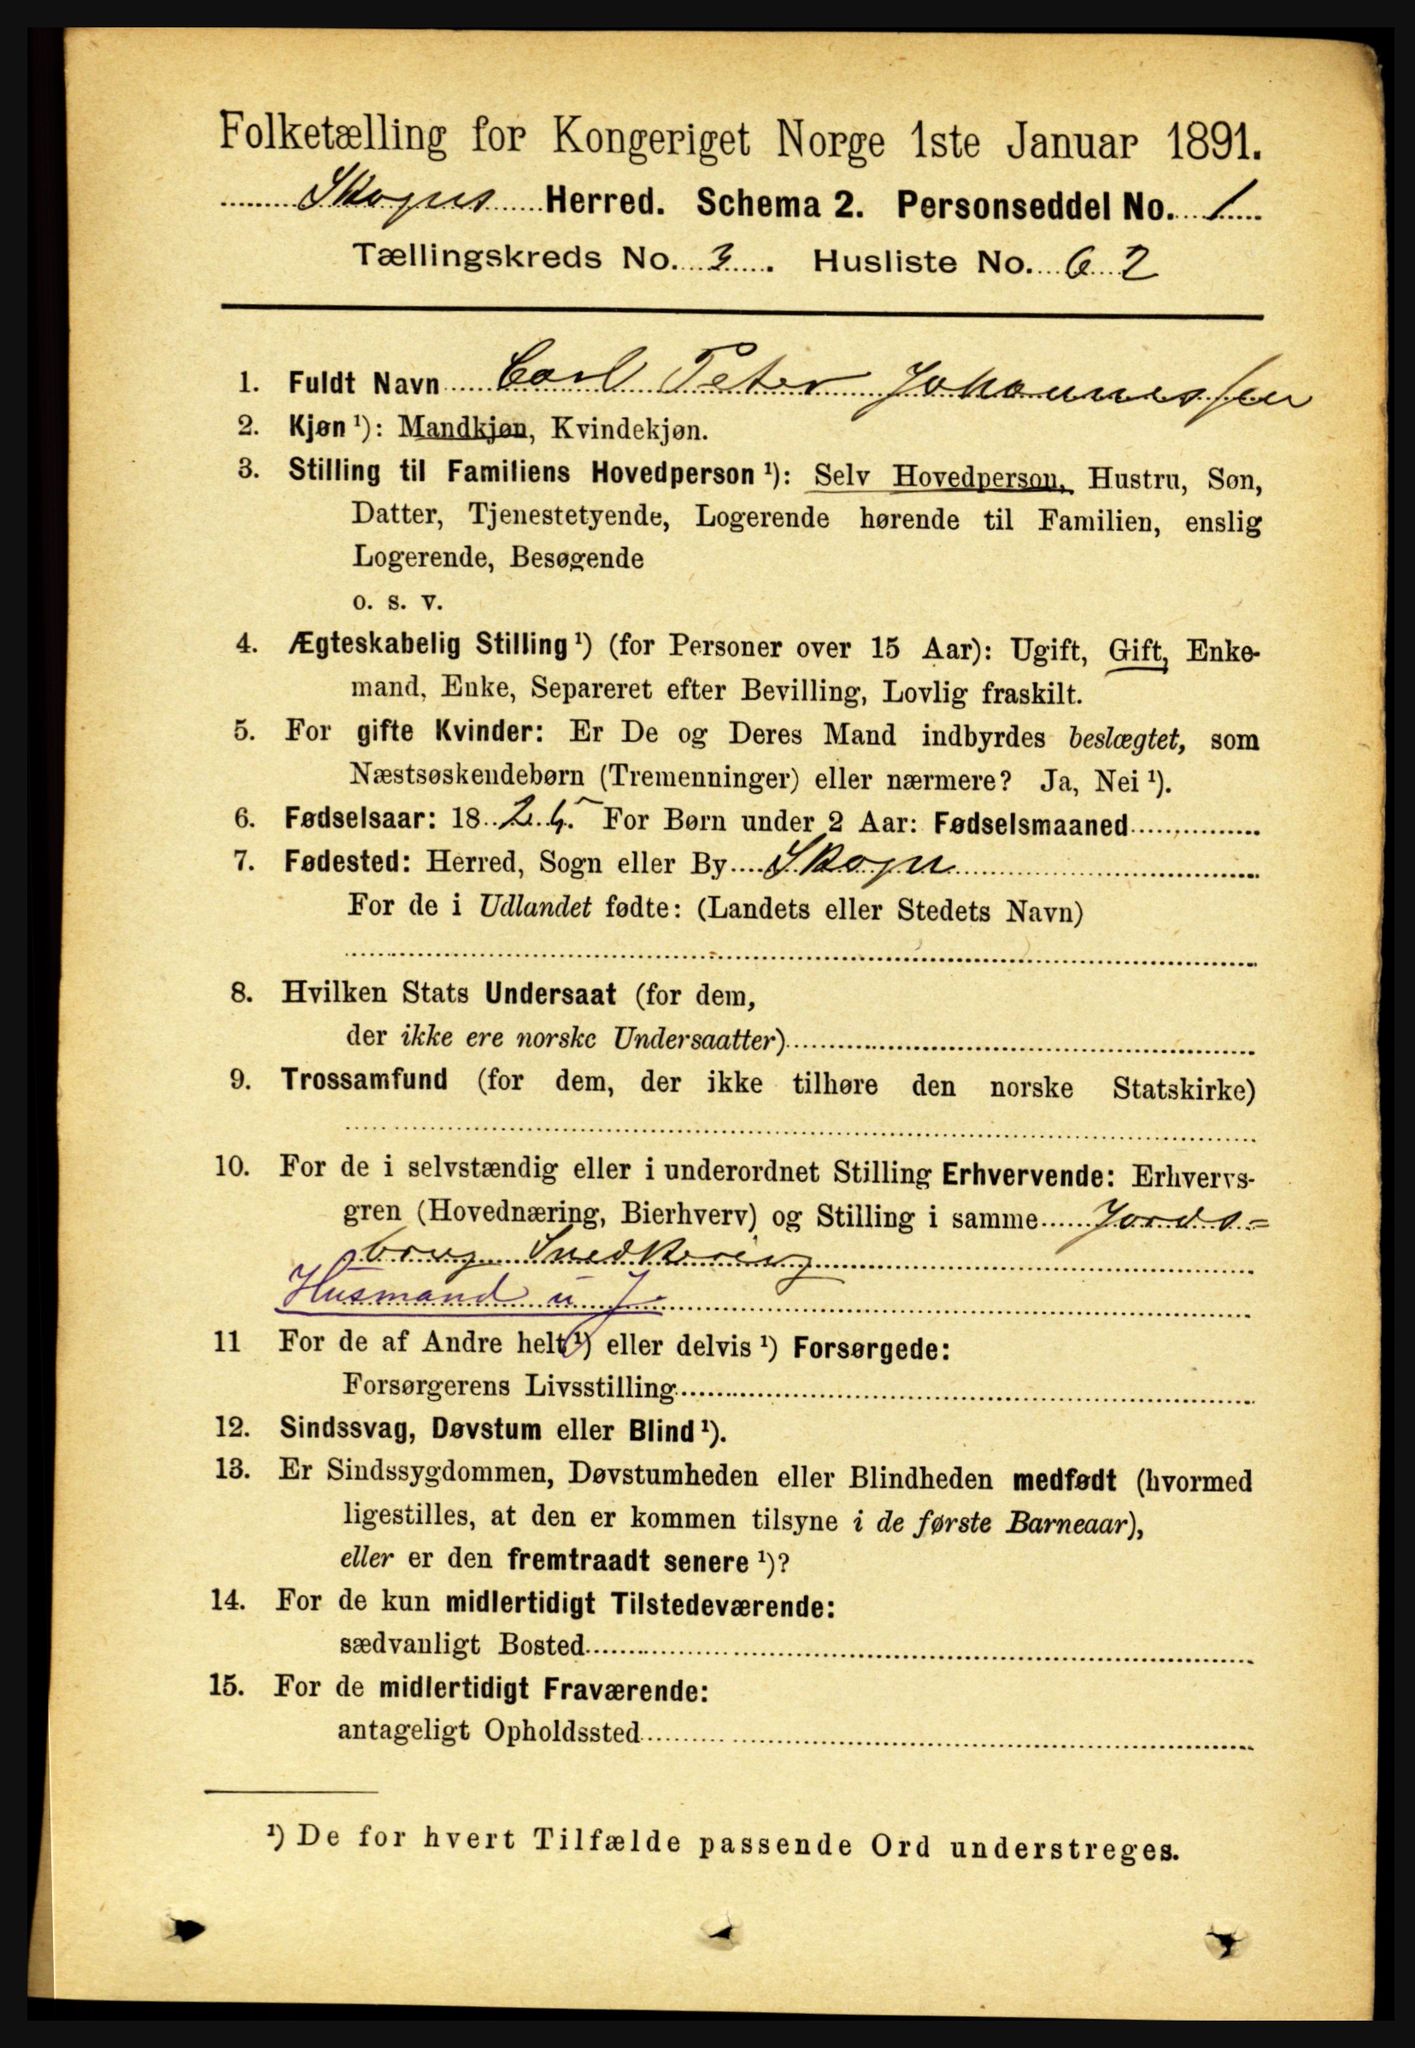 Folketælling for Kongeriget Norge 1ste Januar 1891.
Skogns Herred. Schema 2. Personseddel No. 1
Tællingskreds No. 3. Husliste No. 62
1. Fuldt Navn Carl Peter Johannessen
2. Kjøn ¹): Mandkjøn, Kvindekjøn.
3. Stilling til Familiens Hovedperson ¹): Selv Hovedperson, Hustru, Søn,
Datter, Tjenestetyende, Logerende hørende til Familien, enslig
Logerende, Besøgende
o. s. v.
4. Ægteskabelig Stilling ¹) (for Personer over 15 Aar): Ugift, Gift, Enke-
mand, Enke, Separeret efter Bevilling, Lovlig fraskilt.
5. For gifte Kvinder: Er De og Deres Mand indbyrdes beslægtet, som
Næstsøskendebørn (Tremenninger) eller nærmere? Ja, Nei ¹).
6. Fødselsaar: 1825. For Børn under 2 Aar: Fødselsmaaned
7. Fødested: Herred, Sogn eller By Skogn
For de i Udlandet fødte: (Landets eller Stedets Navn)
8. Hvilken Stats Undersaat (for dem,
der ikke ere norske Undersaatter)
9. Trossamfund (for dem, der ikke tilhøre den norske Statskirke)
10. For de i selvstændig eller i underordnet Stilling Erhvervende: Erhvervs-
gren (Hovednæring, Bierhverv) og Stilling i samme Jords=
brug Snedkering
Husmand u J
11 For de af Andre helt ¹) eller delvis ¹) Forsørgede:
Forsørgerens Livsstilling
12. Sindssvag, Døvstum eller Blind ¹).
13. Er Sindssygdommen, Døvstumheden eller Blindheden medfødt (hvormed
ligestilles, at den er kommen tilsyne i de første Barneaar),
eller er den fremtraadt senere ¹)?
14. For de kun midlertidigt Tilstedeværende:
sædvanligt Bosted
15. For de midlertidigt Fraværende:
antageligt Opholdssted
¹) De for hvert Tilfælde passende Ord understreges.